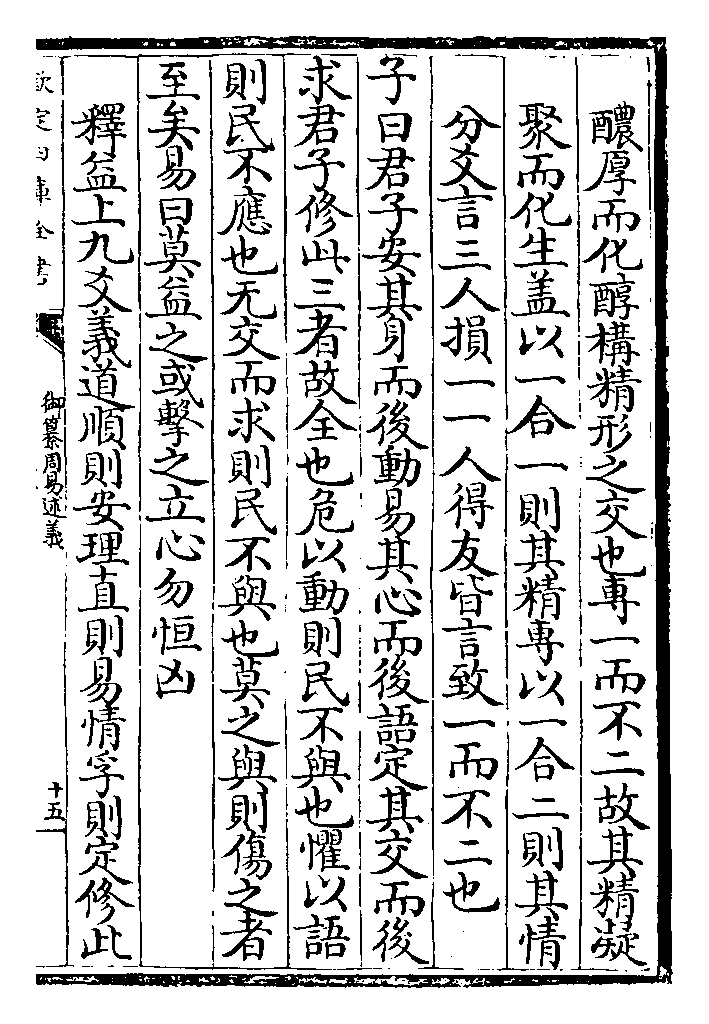 醲厚而化醇構精形之交也專一而不二故其精凝
聚而化生盖以一合一則其精專以一合二則其情
分爻言三人損一一人得友皆言致一而不二也
子曰君子安其身而後動易其心而後語定其交而後
求君子修此三者故全也危以動則民不與也懼以語
則民不應也无交而求則民不與也莫之與則傷之者
至矣易曰莫益之或擊之立心勿恒凶
釋益上九爻義道順則安理直則易情孚則定修此
欽定四庫全書
御纂周易述義
十五